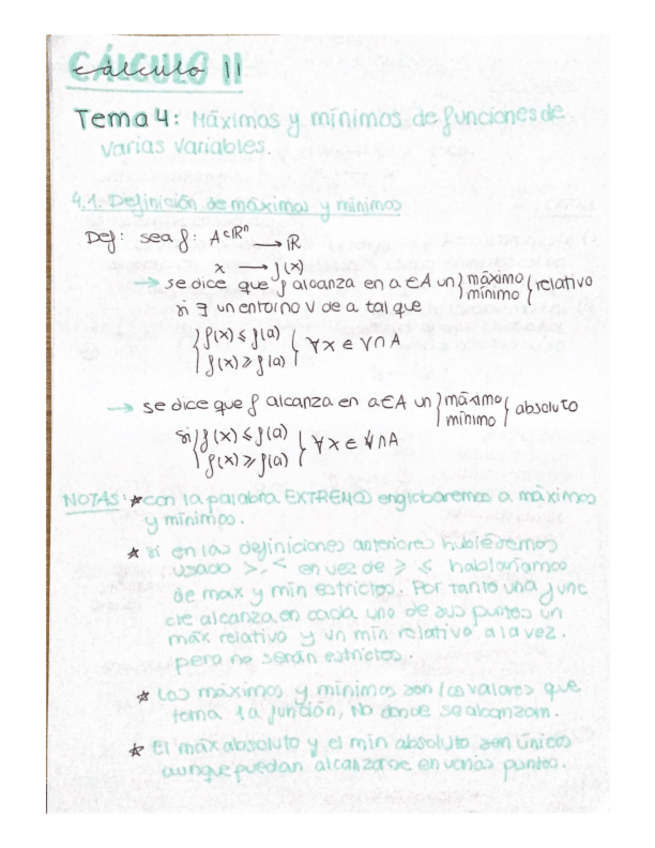 CÁLCULO II
cálculo II
Tema 4: Máximos y mínimos de funciones de
varias variables.
4.1. Definición de máximos y mínimos
Def: sea f: A⊂ℝⁿ → ℝ
x → f(x)
→ se dice que f alcanza en a ∈ A un } máximo mínimo { relativo
si ∃ un entorno V de a tal que
{ f(x) ≤ f(a)
f(x) ≥ f(a) } ∀x ∈ V∩A
→ se dice que f alcanza en a∈A un } máximo mínimo { absoluto
si { f(x) ≤ f(a)
f(x) ≥ f(a) } ∀x ∈ V∩A
NOTAS: * con la palabra EXTREMO englobaremos a máximos
y mínimos.
* si en las definiciones anteriores hubiéramos
usado >, < en vez de ≥ ≤ hablaríamos
de max y min estrictos. Por tanto una func
cte alcanza en cada uno de sus puntos un
máx relativo y un mín relativo a la vez.
pero no serán estrictos.
* Los máximos y mínimos son los valores que
toma la función, NO donde se alcanzan.
* El máx absoluto y el mín absoluto son únicos
aunque puedan alcanzarse en varios puntos.